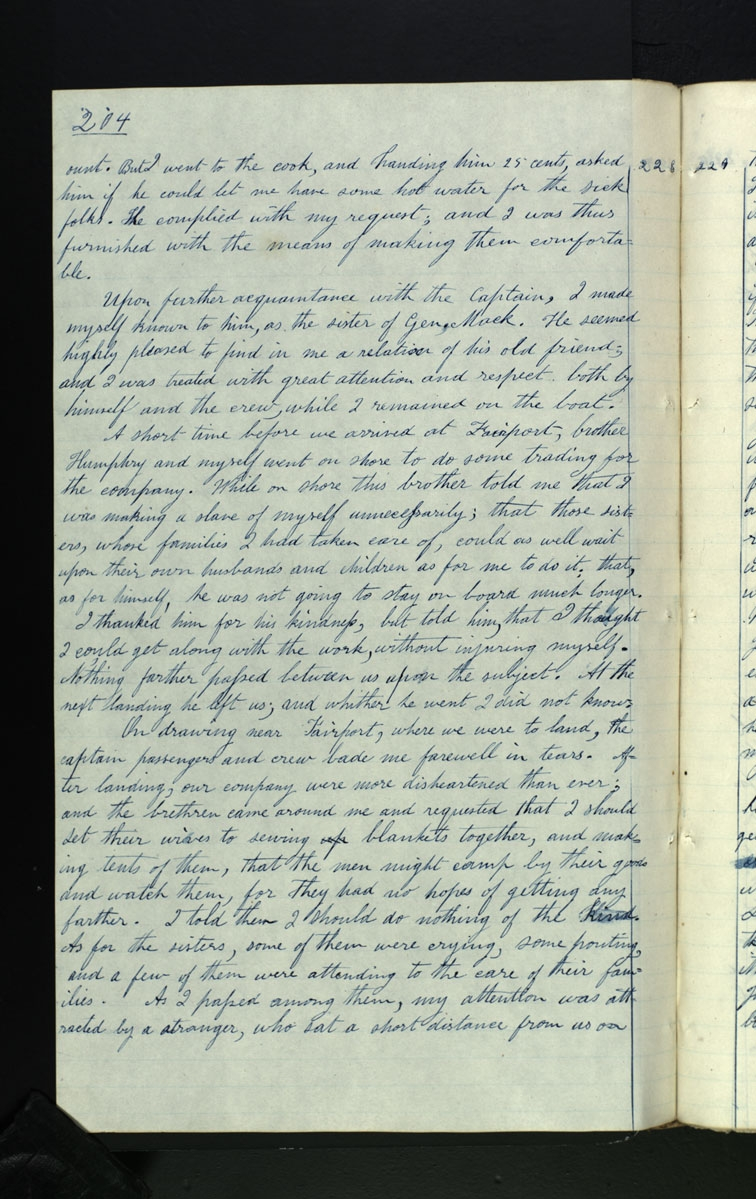 204
ount. But I went to the cook, and handing him 25 cents, asked
him if he could let me have some hot water for the sick
folks. He complied with my request; and I was thus
furnished with the means of making them comforta-
ble.
Upon further acquaintance with the Captain, I made
myself known to him, as the sister of Gen. Mack. He seemed
highly pleased to find in me a relation of his old friend;
and I was treated with great attention and respect both by
himself and the crew, while I remained on the boat.
A short time before we arrived at Fairport, brother
Humphry and myself went on shore to do some trading for
the company. While on shore this brother told me that I
was making a slave of myself unnecessarily; that those sist-
ers, whose families I had taken care of, could as well wait
upon their own husbands and children as for me to do it; that,
as for himself, he was not going to stay on board much longer.
I thanked him for his kindness, but told him, that I thought
I could get along with the work, without injuring myself.
Nothing farther passed between us upon the subject. At the
next landing he left us; and whither he went I did not know.
On drawing near Fairport, where we were to land, the
captain passengers and crew bade me farewell in tears. Af-
ter landing, our company were more disheartened than ever;
and the brethren came around me and requested that I should
set their wives to sewing up blankets together, and mak-
ing tents of them, that the men might camp by their goods
and watch them, for they had no hopes of getting any
farther. I told them I should do nothing of the kind.
As for the sisters, some of them were crying, some pouting,
and a few of them were attending to the care of their fam-
ilies. As I passed among them, my attention was att-
racted by a stranger, who sat a short distance from us on
228 229